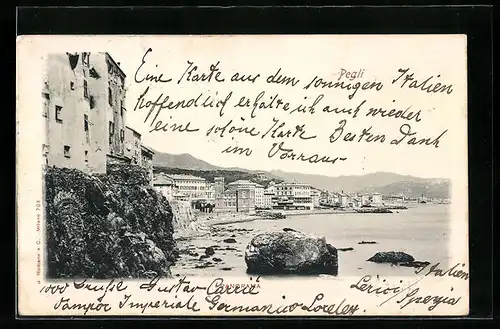 Pegli
Eine Karte aus dem sonnigen Italien
hoffendlich erhalte ich auch wieder
eine schöne Karte Besten Dank
im Vorraus
PANORAMA
1000 Grüße Gustav
Vampor Imperiale Germanico Loreley
Lerici Italien
Spezia
Modiano & C. Milano 703